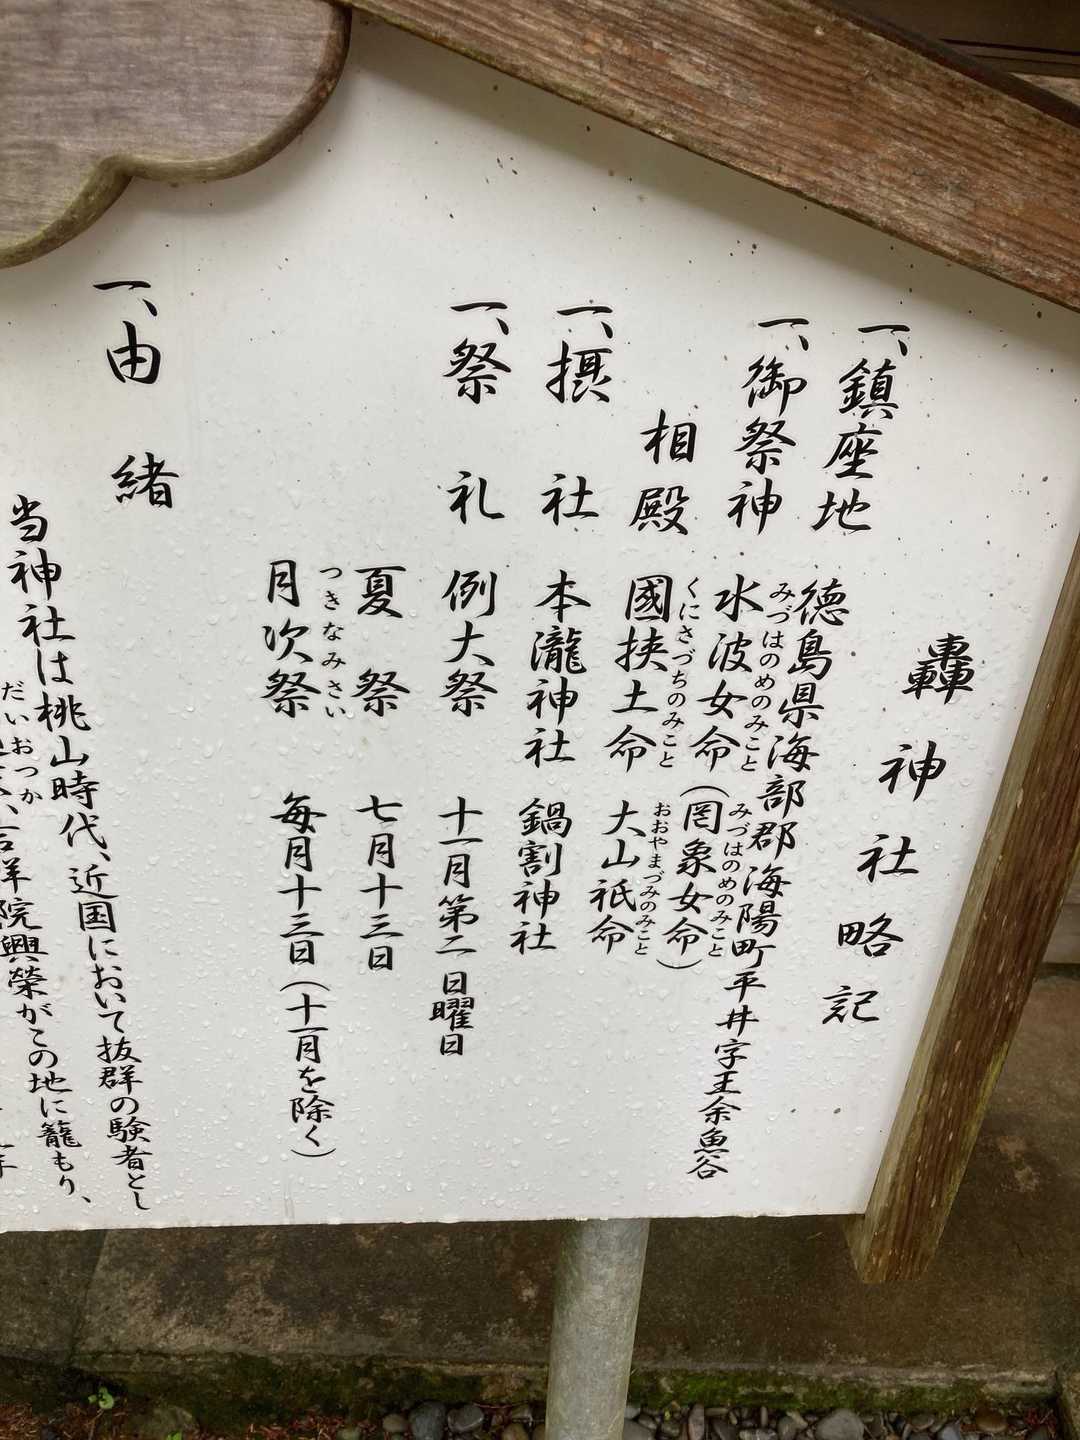 轟神社略記
一、鎮座地 徳島県海部郡海陽町平井字王余魚谷
一、御祭神 水波女命(罔象女命)
みづはのめのみこと みづはのめのみこと
相殿 國挟土命 大山祇命
くにさづちのみこと おおやまづみのみこと
一、摂社 本瀧神社 鍋割神社
一、祭礼 例大祭 十一月第二日曜日
夏祭 七月十三日
月次祭 毎月十三日(十一月を除く)
つきなみさい
一、由緒
当神社は桃山時代、近国において抜群の験者とし
だいおつか
吉祥院興榮がこの地に籠もり、